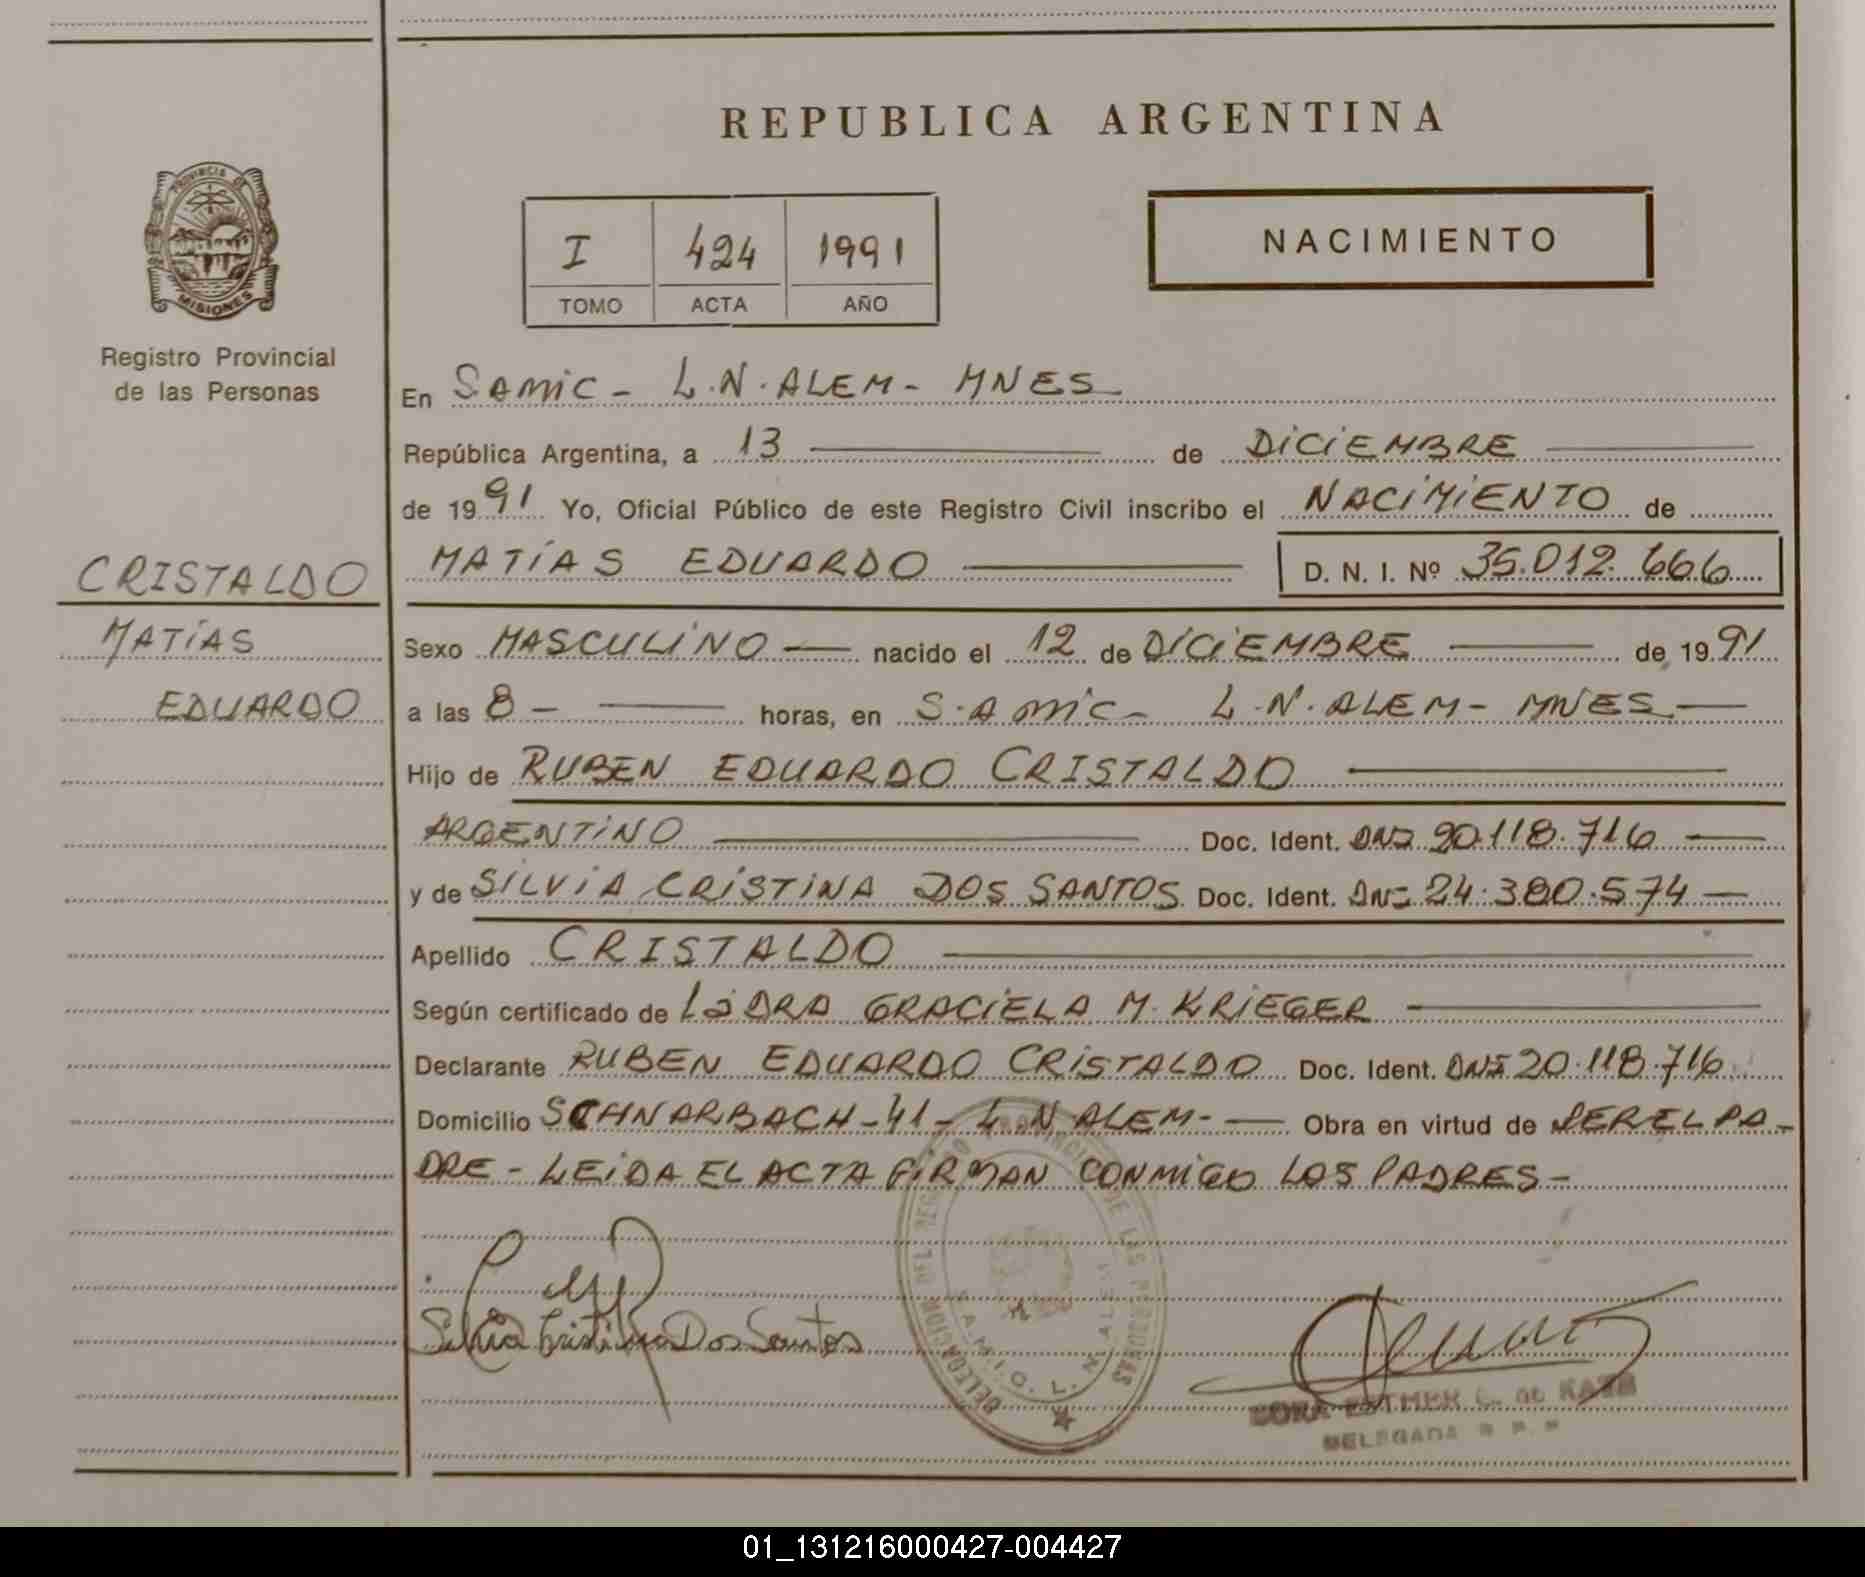 REPUBLICA ARGENTINA
PROVINCIA DE
MISIONES
Registro Provincial
de las Personas
I 424 1991
TOMO ACTA AÑO
NACIMIENTO
En SAMIC - L.N. ALEM - MNES
República Argentina, a 13 de DICIEMBRE
de 1991 Yo, Oficial Público de este Registro Civil inscribo el NACIMIENTO de
CRISTALDO
MATÍAS
EDUARDO
MATÍAS EDUARDO D. N. I. Nº 35.012.666
Sexo MASCULINO nacido el 12 de DICIEMBRE de 1991
a las 8 - horas, en S.AMIC - L.N. ALEM - MNES
Hijo de RUBEN EDUARDO CRISTALDO
ARGENTINO Doc. Ident. DNI 20.118.716
y de SILVIA CRISTINA DOS SANTOS Doc. Ident. DNI 24.380.574
Apellido CRISTALDO
Según certificado de LA DRA GRACIELA M. KRIEGER
Declarante RUBEN EDUARDO CRISTALDO Doc. Ident. DNI 20.118.716
Domicilio SCHNARBACH - 41 - L.N ALEM - Obra en virtud de SER EL PA-
DRE - LEIDA EL ACTA FIRMAN CONMIGO LOS PADRES -
Silvia Cristina Dos Santos
DE LAS PERSONAS
S.A.M.I.C. L. N. ALEM
DELEGADA
01_131216000427-004427